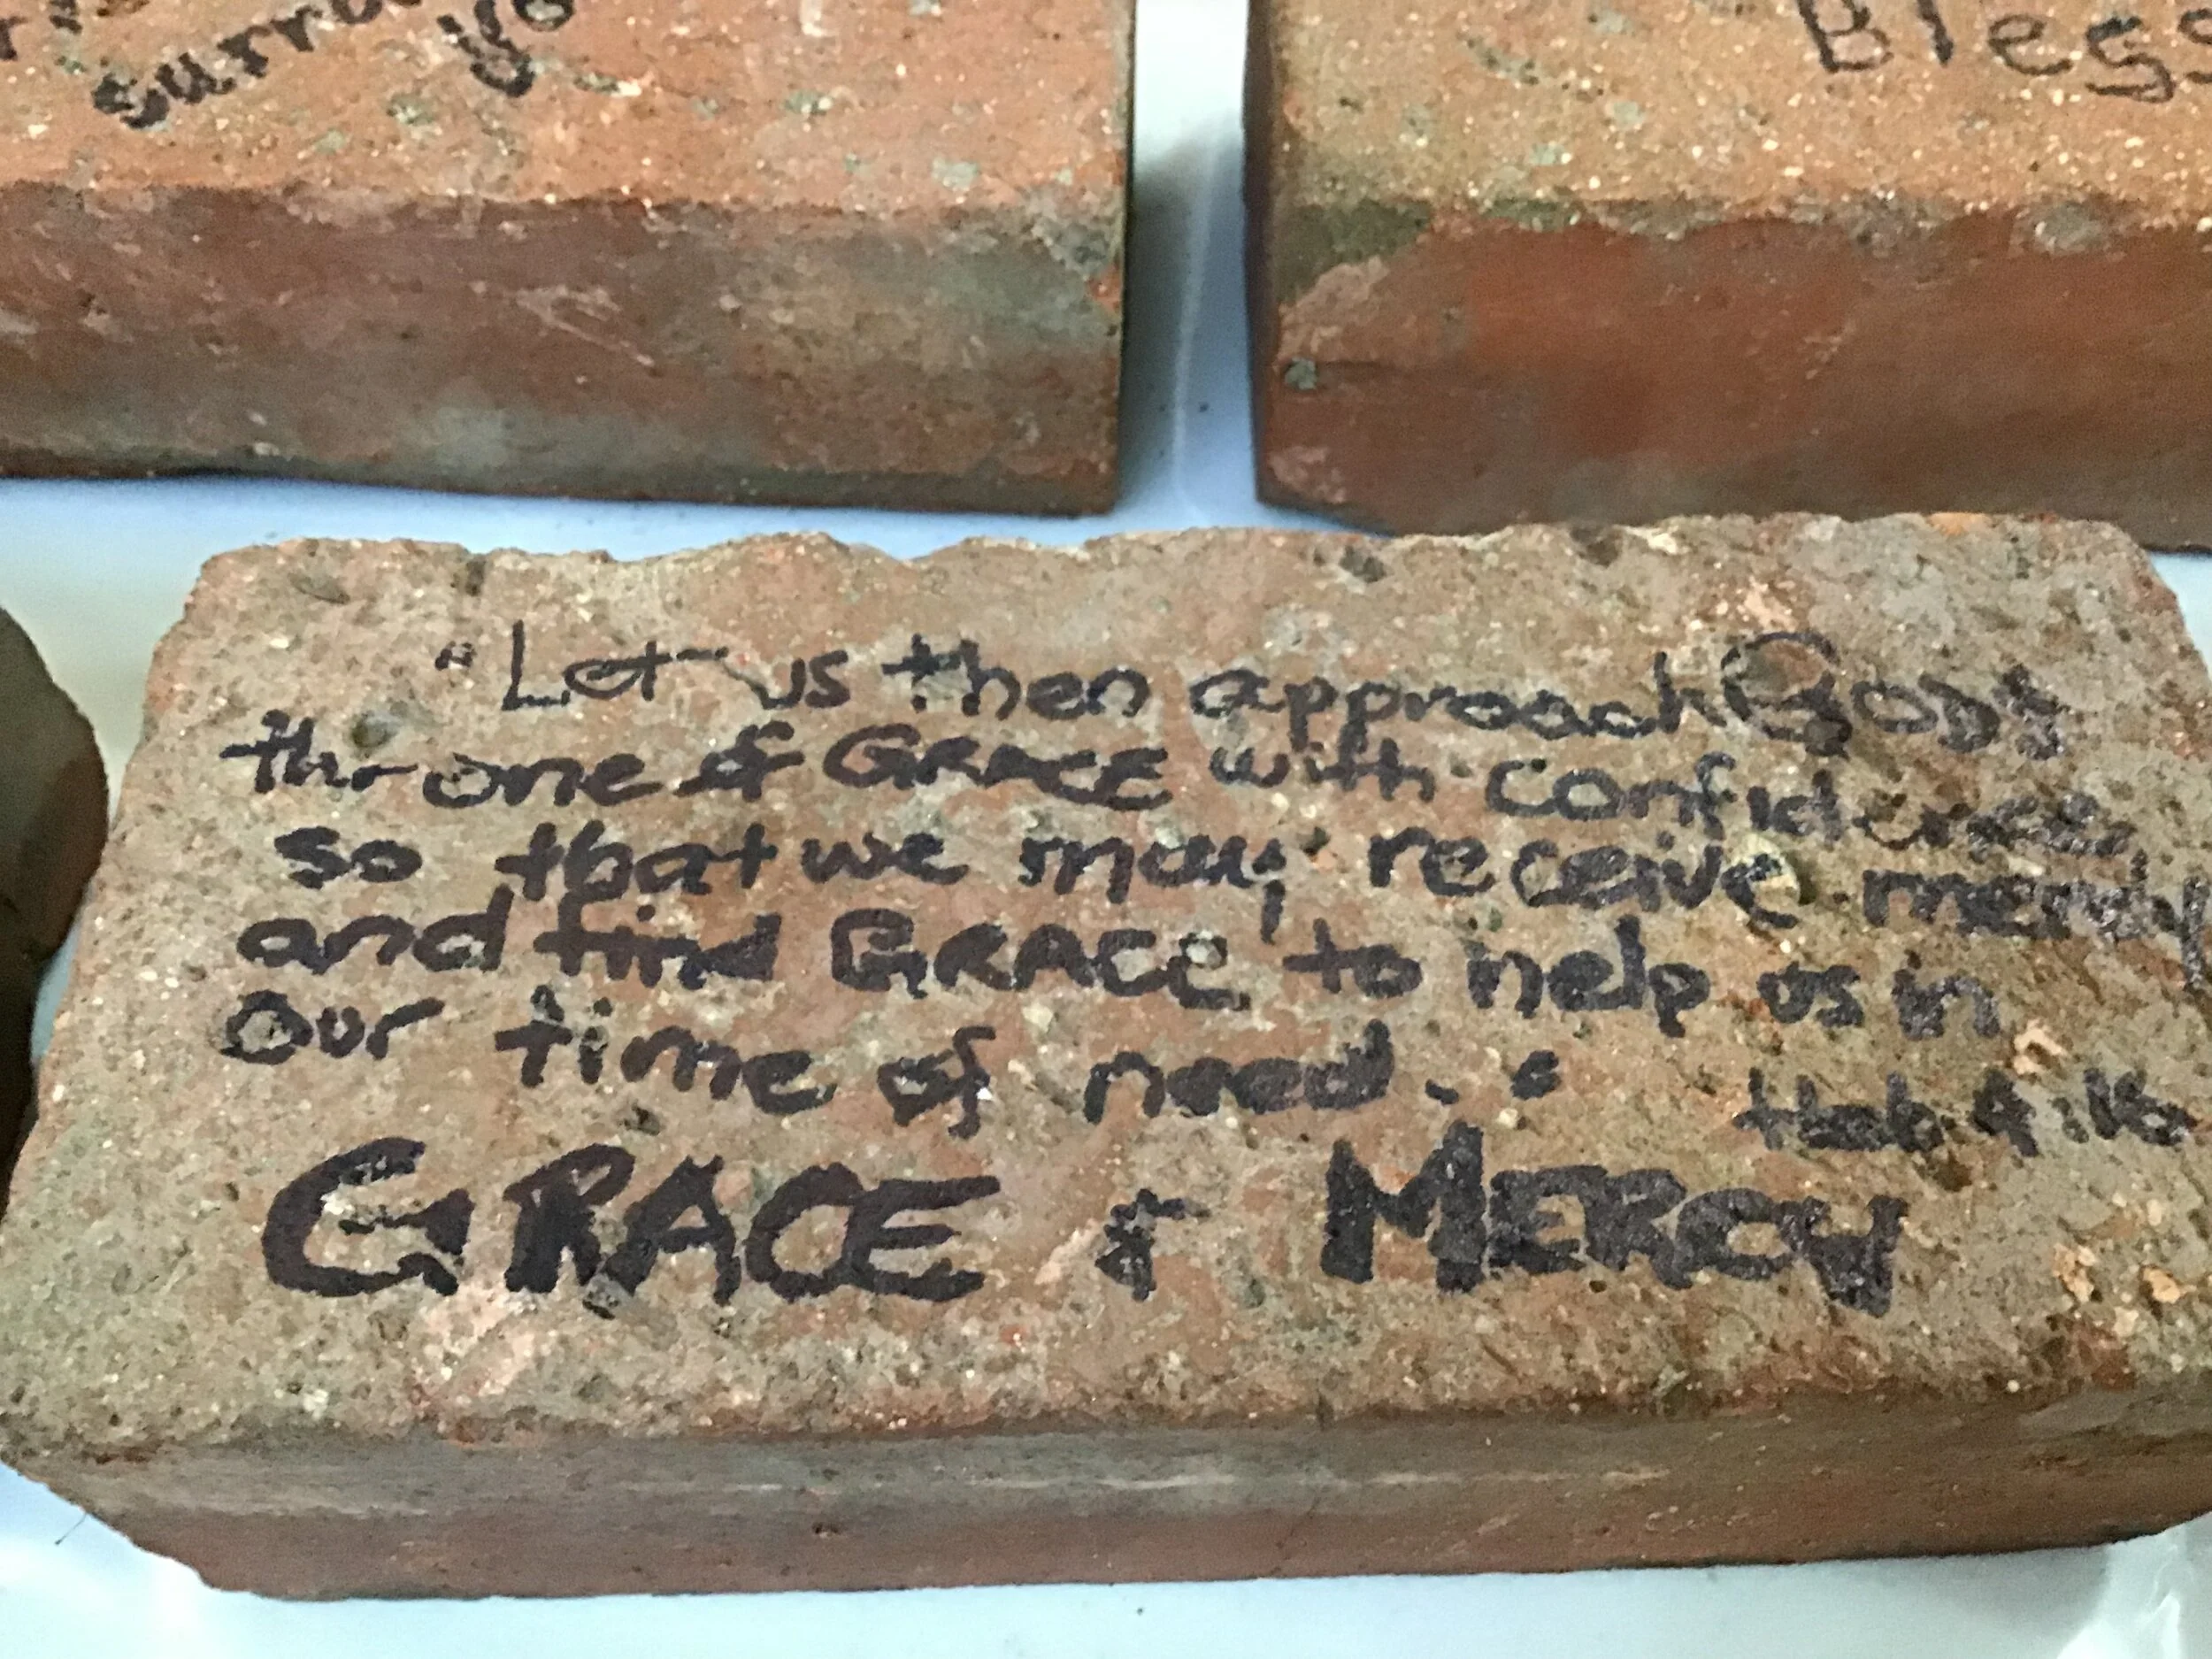 yo
Bless
"Let us then approach Gods
throne of GRACE with confidence
so that we may receive mercy
and find GRACE to help us in
our time of need..
Heb. 4:16
GRACE & MERCY